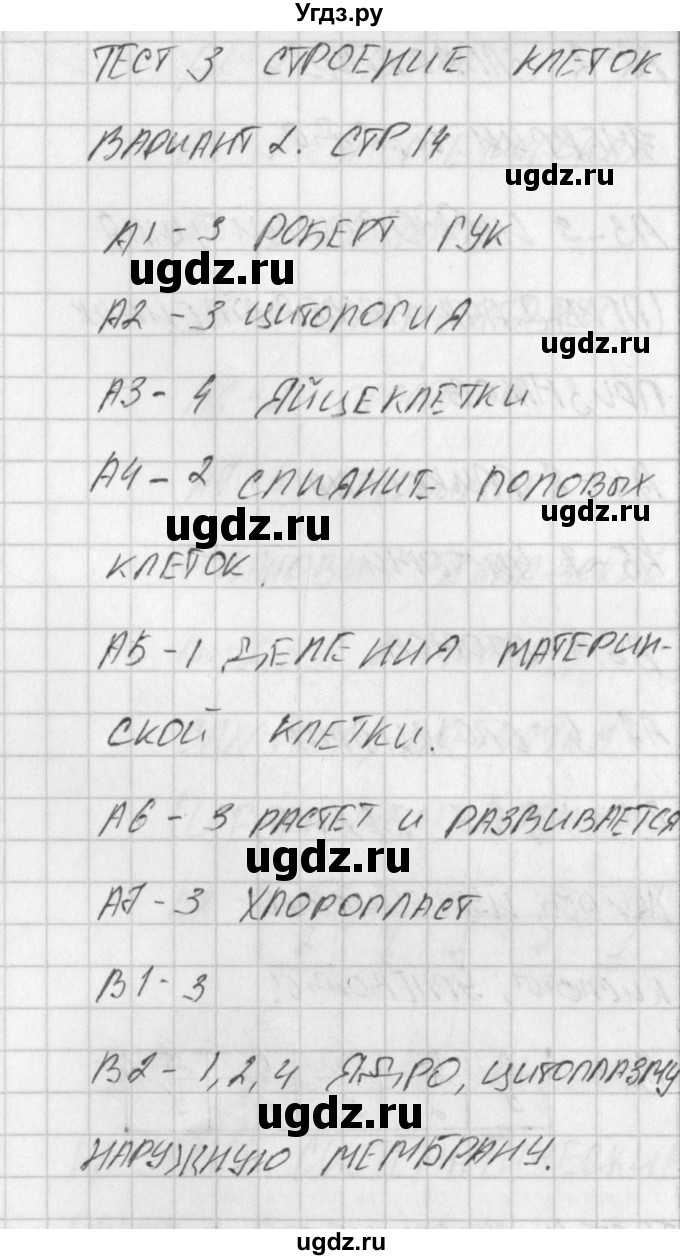 Угдз.ру
ТЕСТ 3 СТРОЕНИЕ КЛЕТОК
ВАРИАНТ 2. СТР. 14
ugdz.ru
А1 - 3 РОБЕРТ ГУК
ugdz.ru
А2 - 3 ЦИТОЛОГИЯ
ugdz.ru
А3 - 4 ЯЙЦЕКЛЕТКИ
А4 - 2 СЛИЯНИЕ ПОЛОВЫХ
ugdz.ru
ugdz.ru
КЛЕТОК.
А5 - 1 ДЕЛЕНИЯ МАТЕРИН-
СКОЙ КЛЕТКИ.
А6 - 3 РАСТЕТ И РАЗВИВАЕТСЯ
ugdz.ru
А7 - 3 ХЛОРОПЛАСТ
В1 - 3
В2 - 1, 2, 4 ЯДРО, ЦИТОПЛАЗМУ
ugdz.ru
НАРУЖНУЮ МЕМБРАНУ.
ugdz.ru